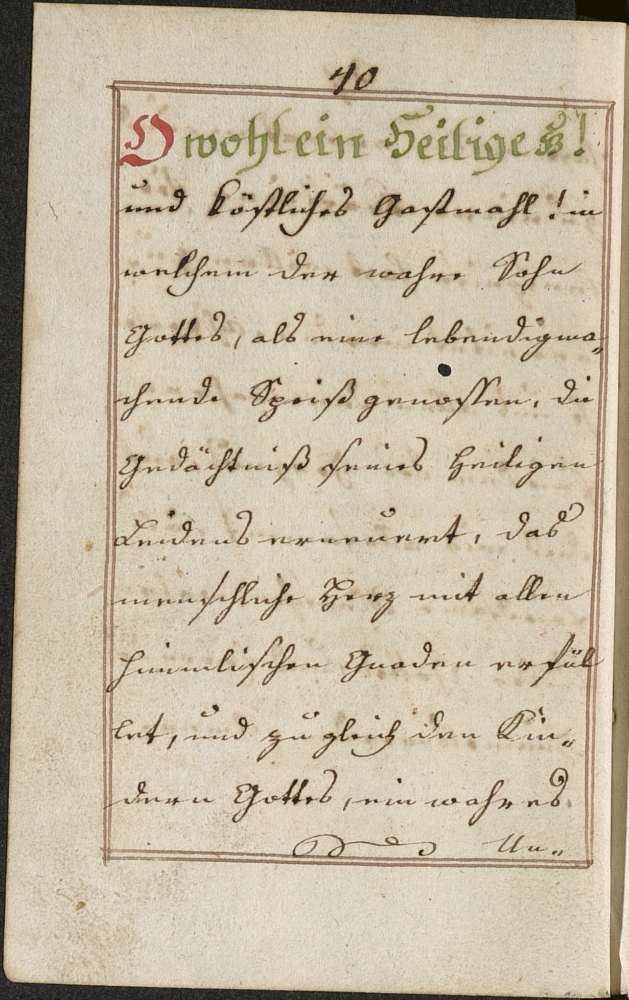 40
O wohl ein Heiliges!
und köstliches Gastmahl! in
welchem der wahre Sohn
Gottes, als eine lebendigma„
chende Speiß genossen, die
Gedächtniß seines heiligen
Leidens erneuert, das
menschliche Herz mit allen
himmlischen Gnaden erfül
let, und zugleich den Kin„
dern Gottes, ein wahres
Un„